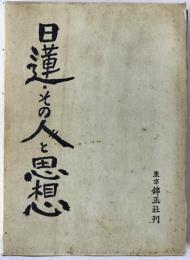 日蓮・その人と思想
東京 錦正社刊